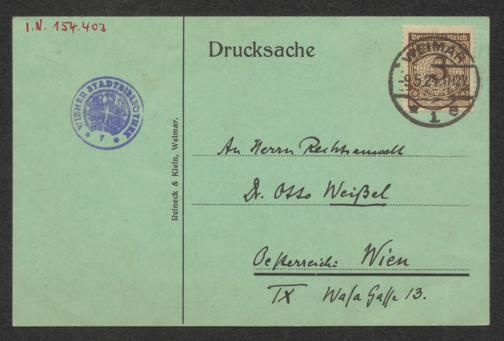 I.N. 154.403
Drucksache
Deutsches Reich
3
WEIMAR
1 e
WIENER STADTBIBLIOTHEK
7
Reineck & Klein, Weimar.
An Herrn Rechtsanwalt
Dr. Otto Weißel
Oesterreich: Wien
IX Wasa Gasse 13.